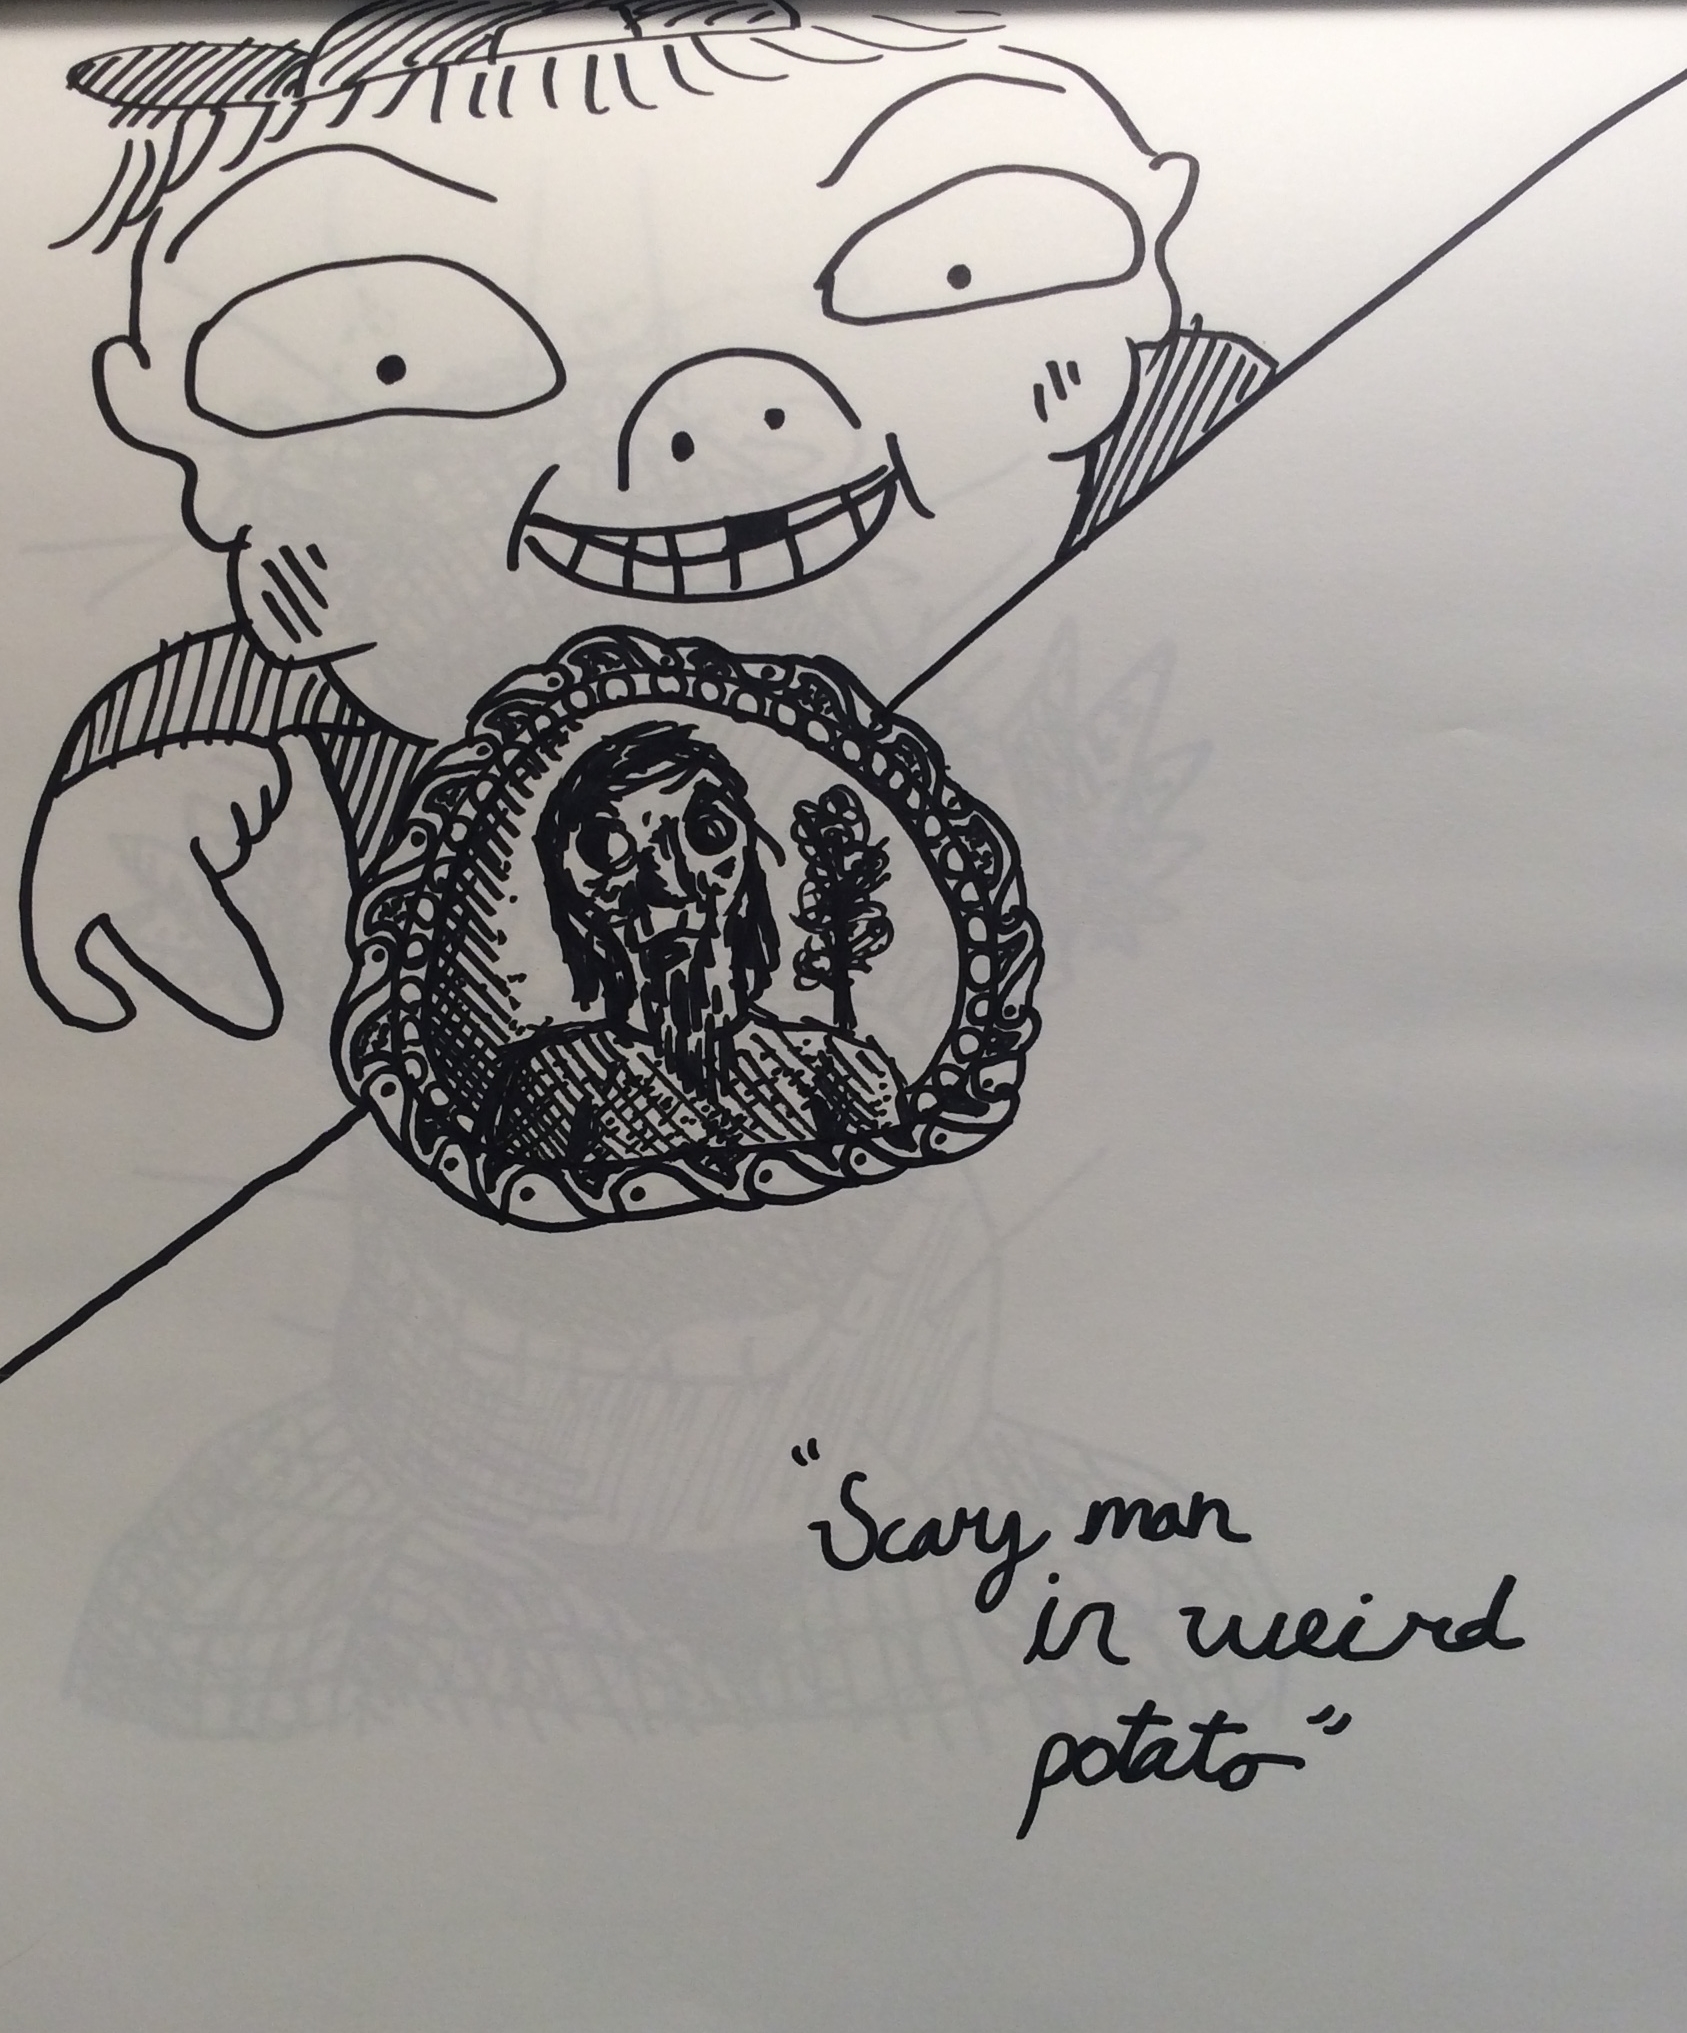 "Scary man
in weird
potato"